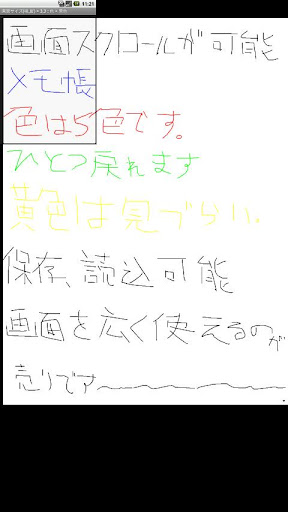 11:21
画面スクロールが可能
メモ帳
色は5色です。
ひとつ戻れます
黄色は見づらい。
保存、読込可能
画面を広く使えるのが
売りでア〜